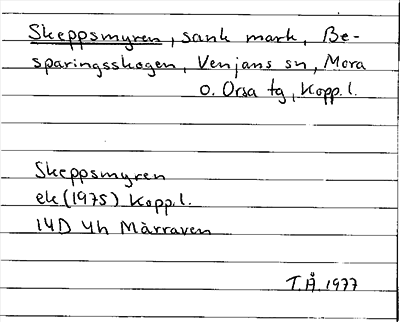 Skeppsmyren, sank mark, Be-
sparingsskogen, Venjans sn, Mora
o. Orsa tg, Kopp.l.
Skeppsmyren
ek (1975) Kopp.l.
14D 4h Mårraven
T.Å. 1977